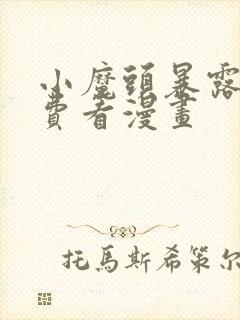 小魔頭暴露
費看漫畫
托馬斯希策尔